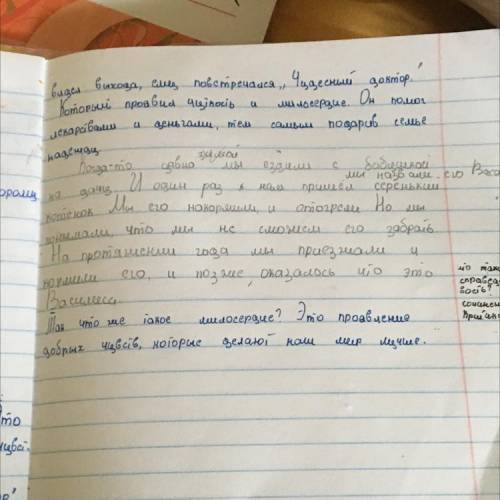 видел выхода, ему повстречался „Чудесный доктор."
Который проявил чуткость и милосердие. Он помог
лекарствами и деньгами, тем самым подарив семье
надежду.
зимой
Когда-то давно мы ездили с бабушкой
мы назвали его Вася
на дачу. И один раз к нам пришёл серенький
котёнок. Мы его накормили, и отогрели. Но мы
понимали, что мы не сможем его забрать
На протяжении года мы приезжали и
кормили его, и позже, оказалось что это
Василиса
Так что же такое милосердие? Это проявление
добрых чувств, которые делают наш мир лучше.
что
справед
вость?
сочинен
Это
чувст.